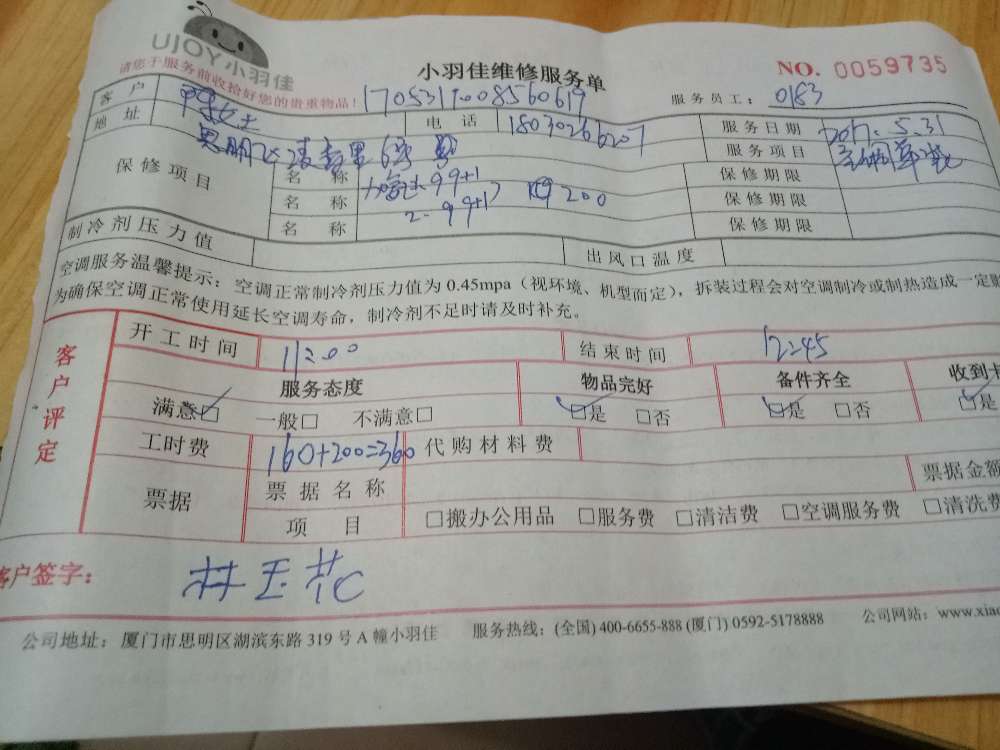 UJOY小羽佳
请您于服务前收拾好您的贵重物品!
小羽佳维修服务单
NO. 0059735
1705319008560619
服务员工: 0183
客户
电话 18030266207
服务日期 2017.5.31
地址 思明区
服务项目
保修项目
名称
保修期限
名称
保修期限
名称
保修期限
制冷剂压力值
出风口温度
空调服务温馨提示:空调正常制冷剂压力值为 0.45mpa(视环境、机型而定),拆装过程会对空调制冷或制热造成一定
为确保空调正常使用延长空调寿命,制冷剂不足时请及时补充。
客户评定
开工时间 11:00
结束时间 12:45
服务态度 物品完好 备件齐全 收到
满意□ 一般□ 不满意□ □是 □否 □是 □否 □是
工时费 160+200=360 代购材料费
票据 票据名称 票据金额
项目 □搬办公用品 □服务费 □清洁费 □空调服务费 □清洗费
客户签字: 林玉花
公司地址:厦门市思明区湖滨东路 319 号 A 幢小羽佳 服务热线:(全国) 400-6655-888 (厦门) 0592-5178888 公司网站:www.xiao